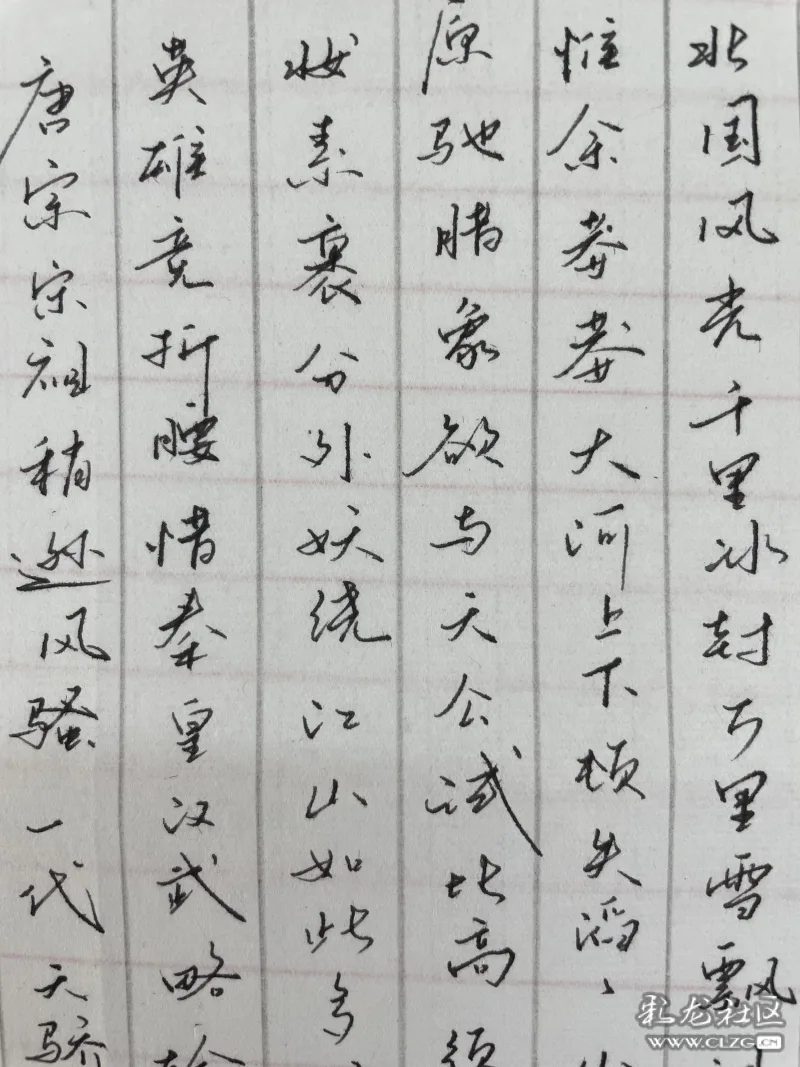 北国风光千里冰封万里雪飘
惟余莽莽大河上下顿失滔、
原驰腊象欲与天公试比高须
妆素裹分外妖绕江山如此多
英雄竞折腰惜秦皇汉武略输
唐宗宋祖稍逊风骚一代天骄
彩龙社区
WWW.CLZG.CN